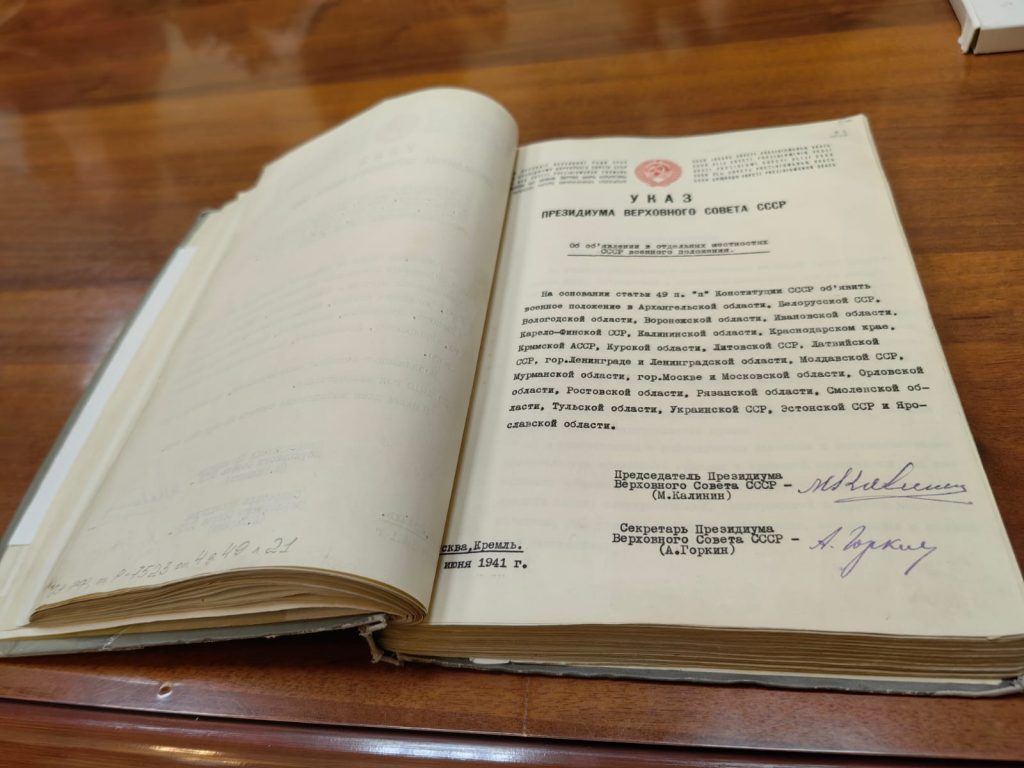 УКАЗ
ПРЕЗИДИУМА ВЕРХОВНОГО СОВЕТА СССР
Об об'явлении в отдельных местностях
СССР военного положения.
На основании статьи 49 п. "п" Конституции СССР об'явить
военное положение в Архангельской области, Белорусской ССР,
Вологодской области, Воронежской области, Ивановской области,
Карело-Финской ССР, Калининской области, Краснодарском крае,
Крымской АССР, Курской области, Литовской ССР, Латвийской
ССР, гор.Ленинграде и Ленинградской области, Молдавской ССР,
Мурманской области, гор.Москве и Московской области, Орловской
области, Ростовской области, Рязанской области, Смоленской об-
ласти, Тульской области, Украинской ССР, Эстонской ССР и Яро-
славской области.
Председатель Президиума
Верховного Совета СССР -
(М.Калинин)
М Калинин
Секретарь Президиума
Верховного Совета СССР -
(А.Горкин)
А. Горкин
сква,Кремль.
июня 1941 г.